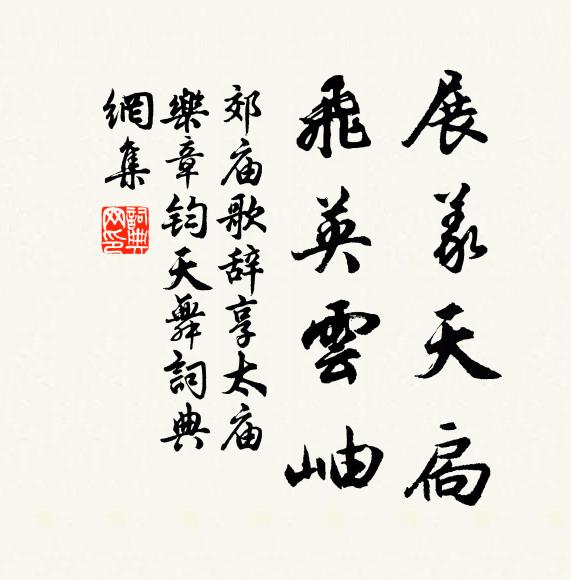 展義天扃
飛英雲岫
郊庙歌辞享太庙
樂章鈞天舞詞典
網集
詞典网印